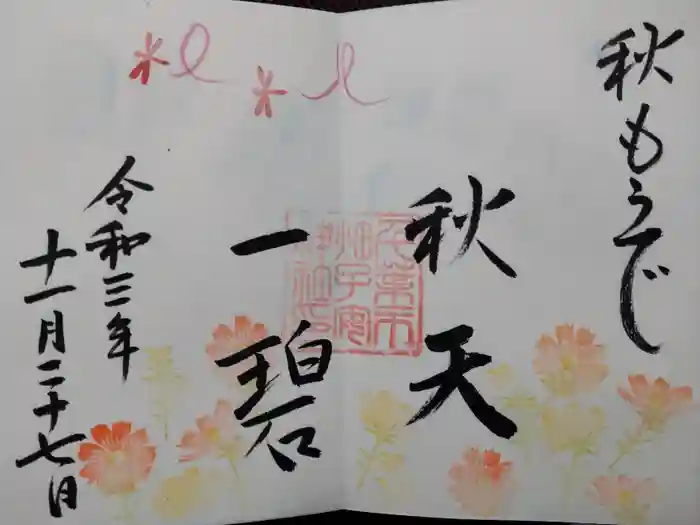 秋もうで
秋天
一碧
令和三年
十一月二十七日